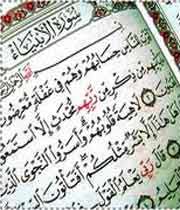 سُورَةُ الْأَنْبِيَاءِ
لِلنَّاسِ حِسَابُهُمْ وَهُمْ فِي غَفْلَةٍ مُعْرِضُونَ
مِنْ ذِكْرٍ مِنْ رَبِّهِمْ مُحْدَثٍ إِلَّا اسْتَمَعُوهُ
لَاهِيَةً قُلُوبُهُمْ وَأَسَرُّوا النَّجْوَى الَّذِينَ
هَلْ هَذَا إِلَّا بَشَرٌ مِثْلُكُمْ أَفَتَأْتُونَ
قَالَ رَبِّي يَعْلَمُ الْقَوْلَ